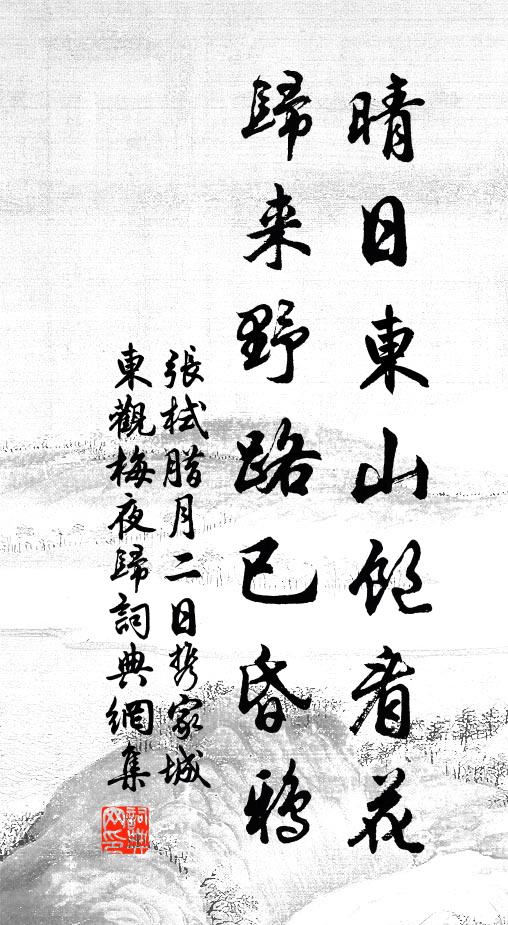 晴日東山飽看花
歸来野路已昏鴉
張栻臘月二日携家城
東觀梅夜歸詞典網集